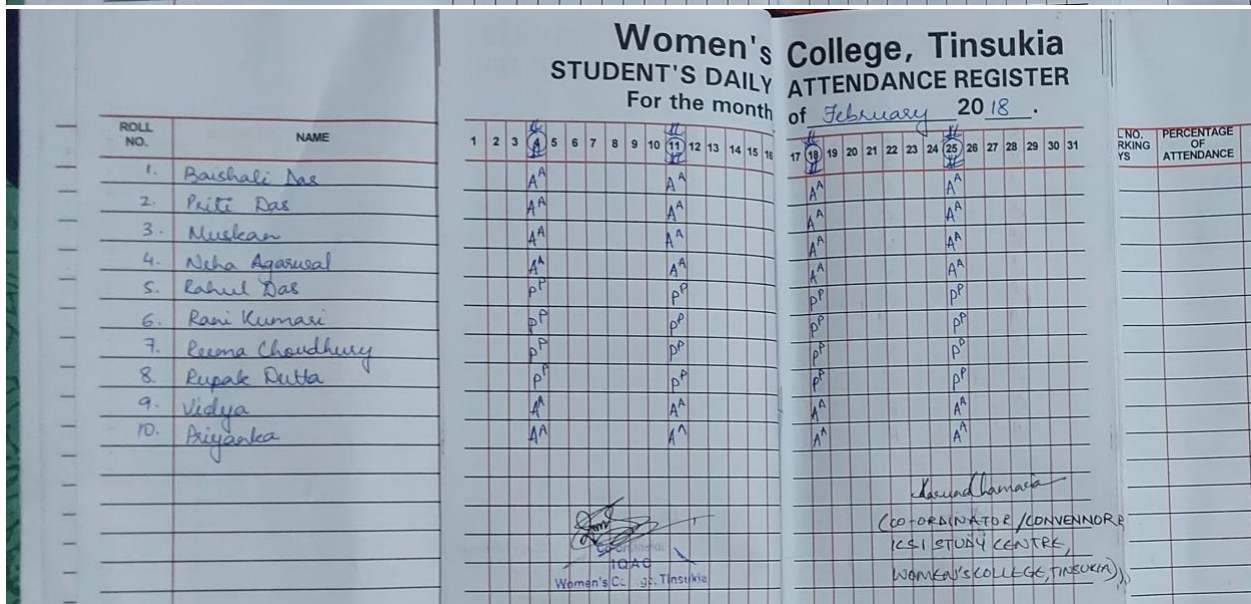 Women's College, Tinsukia
STUDENT'S DAILY ATTENDANCE REGISTER
For the month of February 2018.
ROLL NO. NAME 1 2 3 4 5 6 7 8 9 10 11 12 13 14 15 16 17 18 19 20 21 22 23 24 25 26 27 28 29 30 31 L NO. RKING YS PERCENTAGE OF ATTENDANCE
1. Baishali Das AA AA AA AA
2. Priti Das AA AA AA AA
3. Muskan AA AA AA AA
4. Neha Agarwal AA AA AA AA
5. Rahul Das PP PP PP PP
6. Rani Kumari PP PP PP PP
7. Reema Choudhury PP PP PP PP
8. Rupak Dutta PP PP PP PP
9. Vidya AA AA AA AA
10. Priyanka AA AA AA AA
(CO-ORDINATOR/CONVENNOR
ICSI STUDY CENTRE,
WOMEN'S COLLEGE, TINSUKIA)
IQAC
Women's Tinsukia